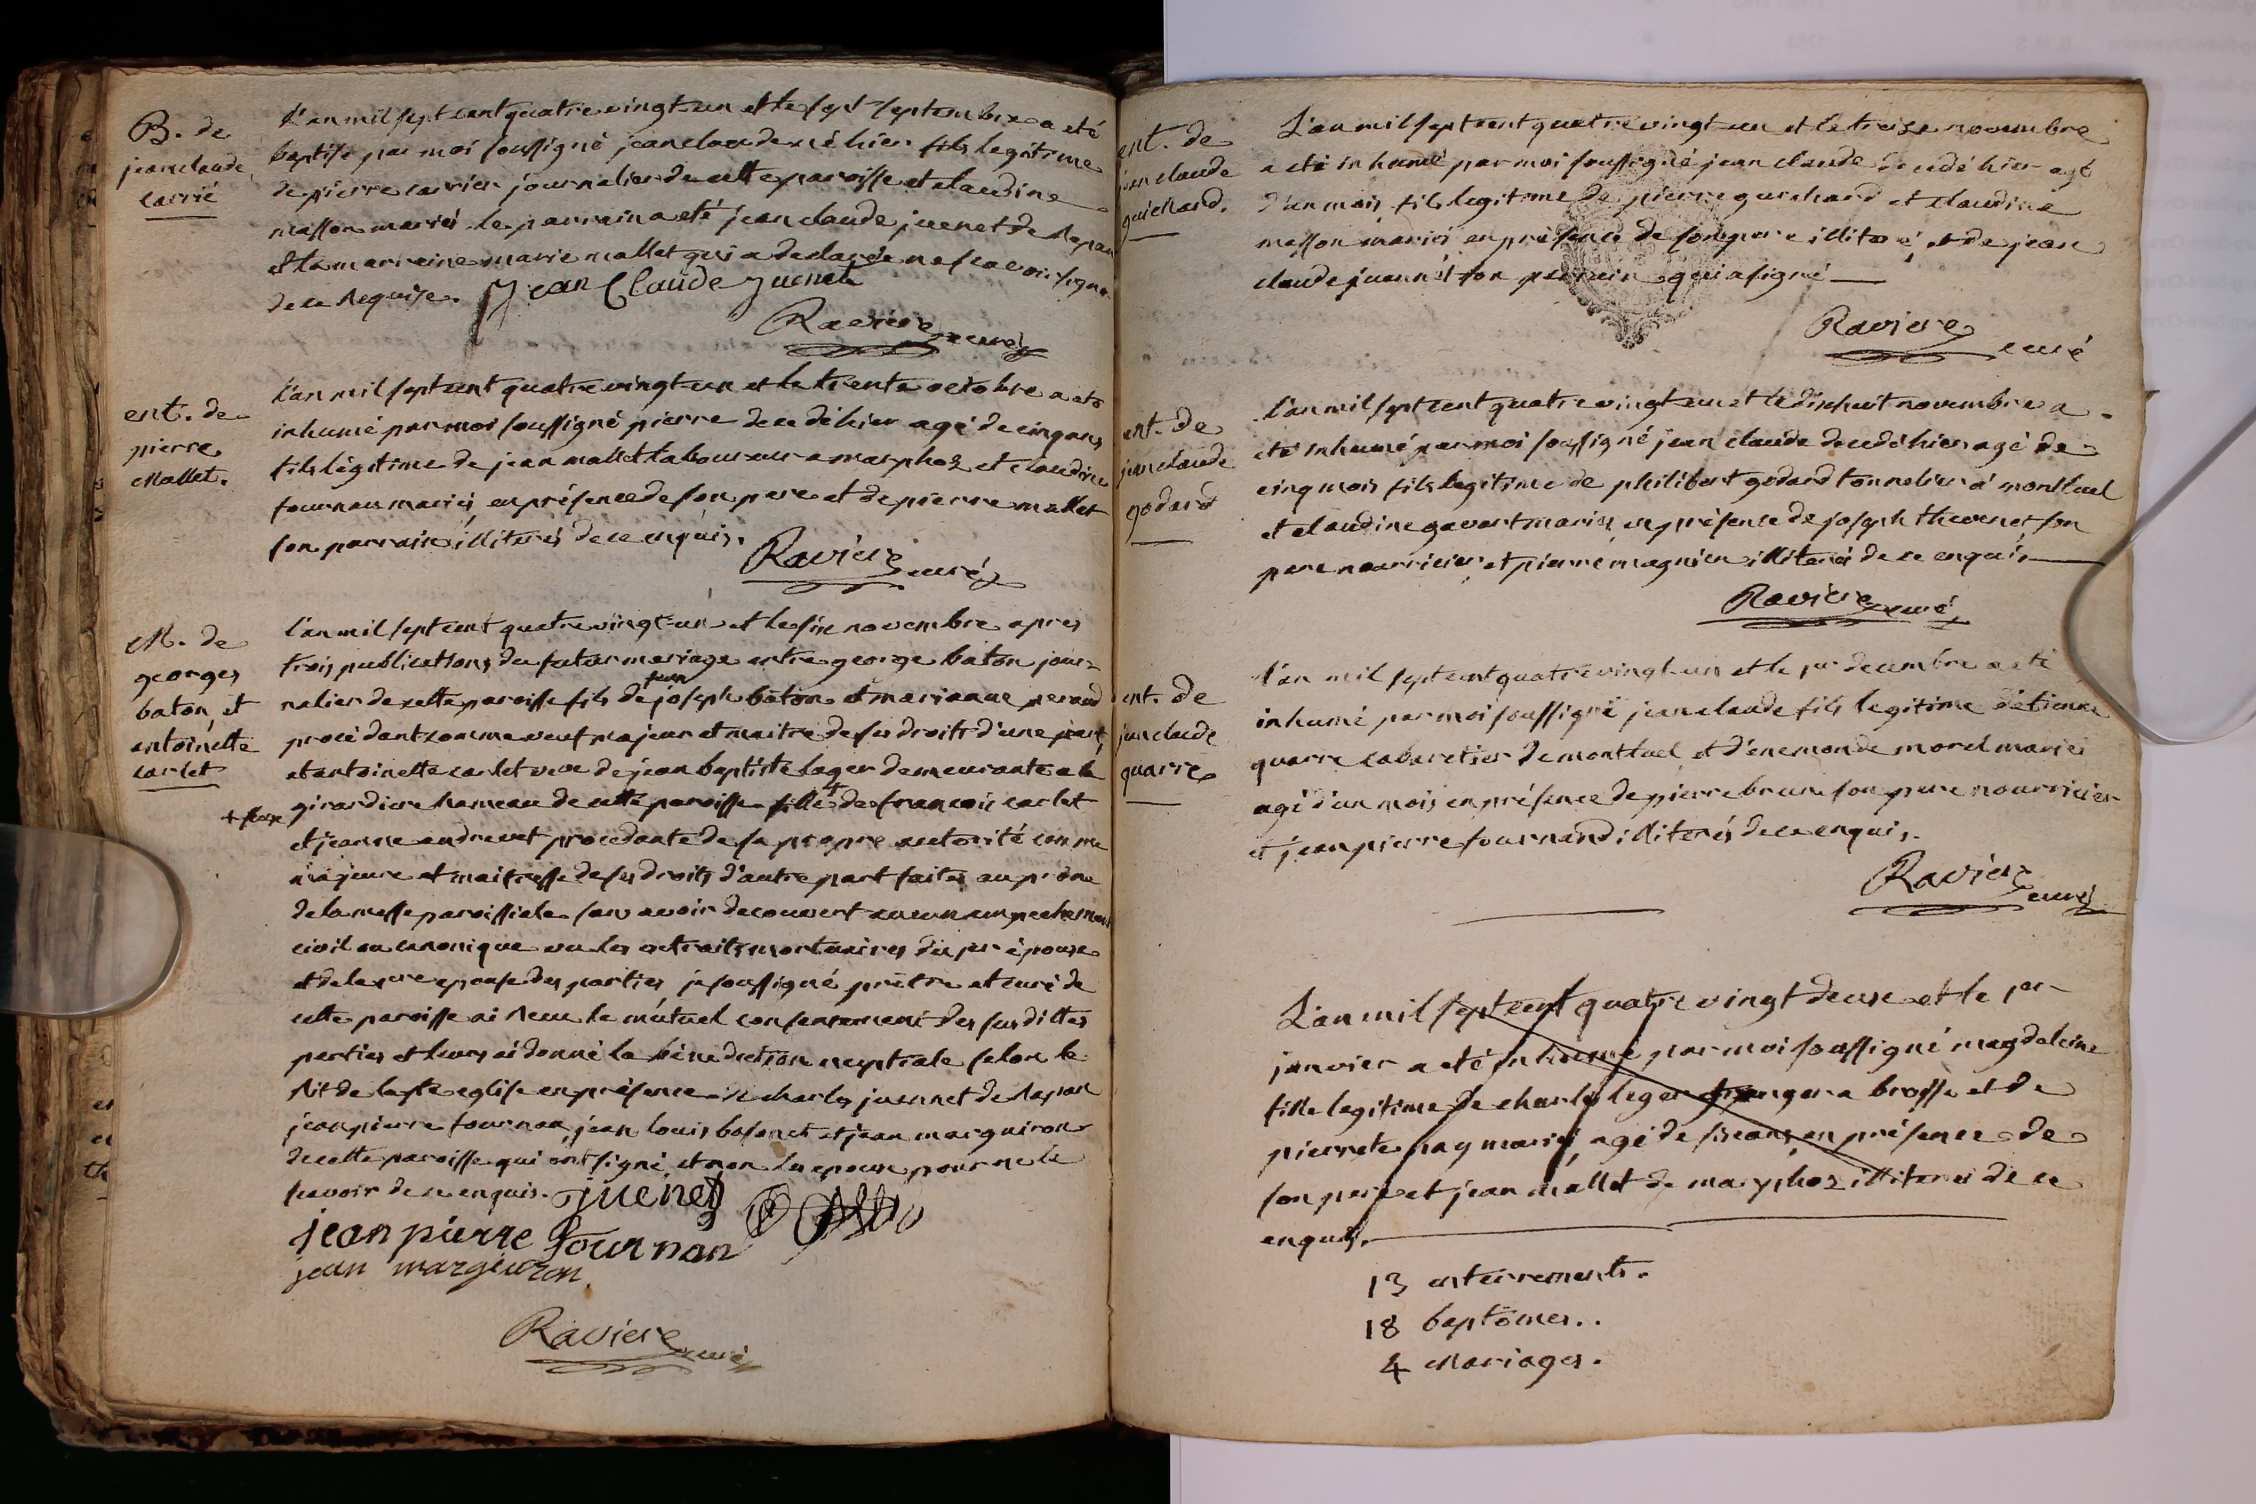 B. de
jean claude
carrié
L'an mil sept cent quatre vingt-un et le sept septembre a eté
baptisé par moi soussigné jean claude né hier fils legitime
de pierre carrier journalier de cette paroisse et claudine
masson mariés le parrain a eté jean claude juenet de
et la marreine marie mallet qui a declaré ne scavoir signer
de ce requise. Jean Claude Juenet
Raviere curé
ent. de
pierre
Mallet.
L'an mil sept cent quatre vingt-un et le trente octobre a eté
inhumé par moi soussigné pierre decedé hier agé de cinq ans
fils légitime de jean mallet laboureur a marphoz et claudine
fournan mariés en présence de son pere et de pierre mallet
son parrain illiterés de ce enquis.
Raviere curé
M. de
georges
baton et
antoinette
carlet
L'an mil sept cent quatre vingt-un et le six novembre apres
trois publications du futur mariage entre george baton jour-
nalier de cette paroisse fils de feu joseph baton et marianne peraud
procédant comme veuf majeur et maitre de ses droits d'une part,
et antoinette carlet veve de jean baptiste lager demeurante a la
girardiere hameau de cette paroisse fille + de francois carlet
+ feux
et jeanne andrevet procedante de sa propre autorité comme
majeure et maitresse de ses droits d'autre part faites au prône
de la messe paroissiale sans avoir decouvert aucun empechement
civil ou canonique vu les extraits mortuaires du pr époux
et de la ere epouse des parties je soussigné prêtre et curé de
cette paroisse ai recu le mutuel consentement des susdittes
parties et leurs ai donné la bénédiction nuptiale selon le
rit de la ste eglise en présence de charles juennet de
jean pierre fournan, jean louis et jean marguiron
de cette paroisse qui ont signé et non les epoux pour ne le
scavoir de ce enquis. Juenet
jean pierre fournan
jean margeuron
Raviere curé
ent. de
jean claude
guichard.
L'an mil sept cent quatre vingt-un et le treize novembre
a eté inhumé par moi soussigné jean claude decedé hier agé
d'un mois fils legitime de pierre guichard et claudine
masson mariés en présence de son pere illiteré, et de jean
claude juennet son parrain qui a signé
Raviere curé
ent. de
jean claude
godard
L'an mil sept cent quatre vingt-un et le dixhuit novembre a
eté inhumé par moi soussigné jean claude decedé hier agé de
cinq mois fils legitime de philibert godard tonnelier a montluel
et claudine gavart mariés en présence de joseph thevenet son
pere nourricier et pierre magnien illiterés de ce enquis.
Raviere curé
ent. de
jean claude
quarre
L'an mil sept cent quatre vingt-un et le pr decembre a eté
inhumé par moi soussigné jean claude fils legitime d'étienne
quarre cabaretier de montluel et d'enemonde morel mariés
agé d'un mois en présence de pierre brun son pere nourricier
et jean pierre fournand illiterés de ce enquis.
Raviere curé
L'an mil sept cent quatre vingt deux et le pr
janvier a eté inhumé par moi soussigné magdeleine
fille legitime de charle leger granger a brosse et de
pierrete pay mariés, agé de six ans en présence de
son pere et jean mallet de maryphoz illiterés de ce
enquis.
13 enterrements.
18 baptêmes..
4 Mariages.